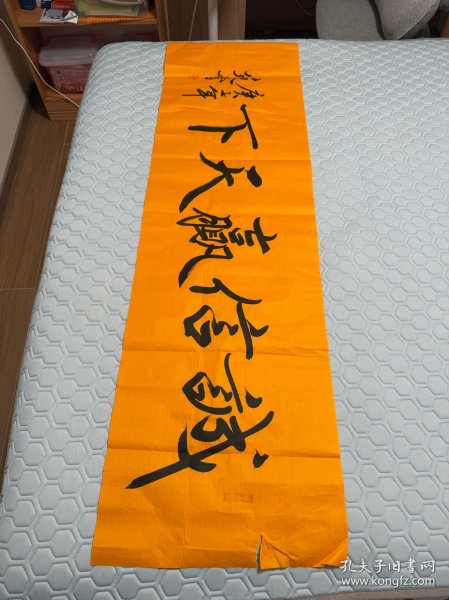 誠信贏天下
孔夫子旧书网
www.kongfz.com